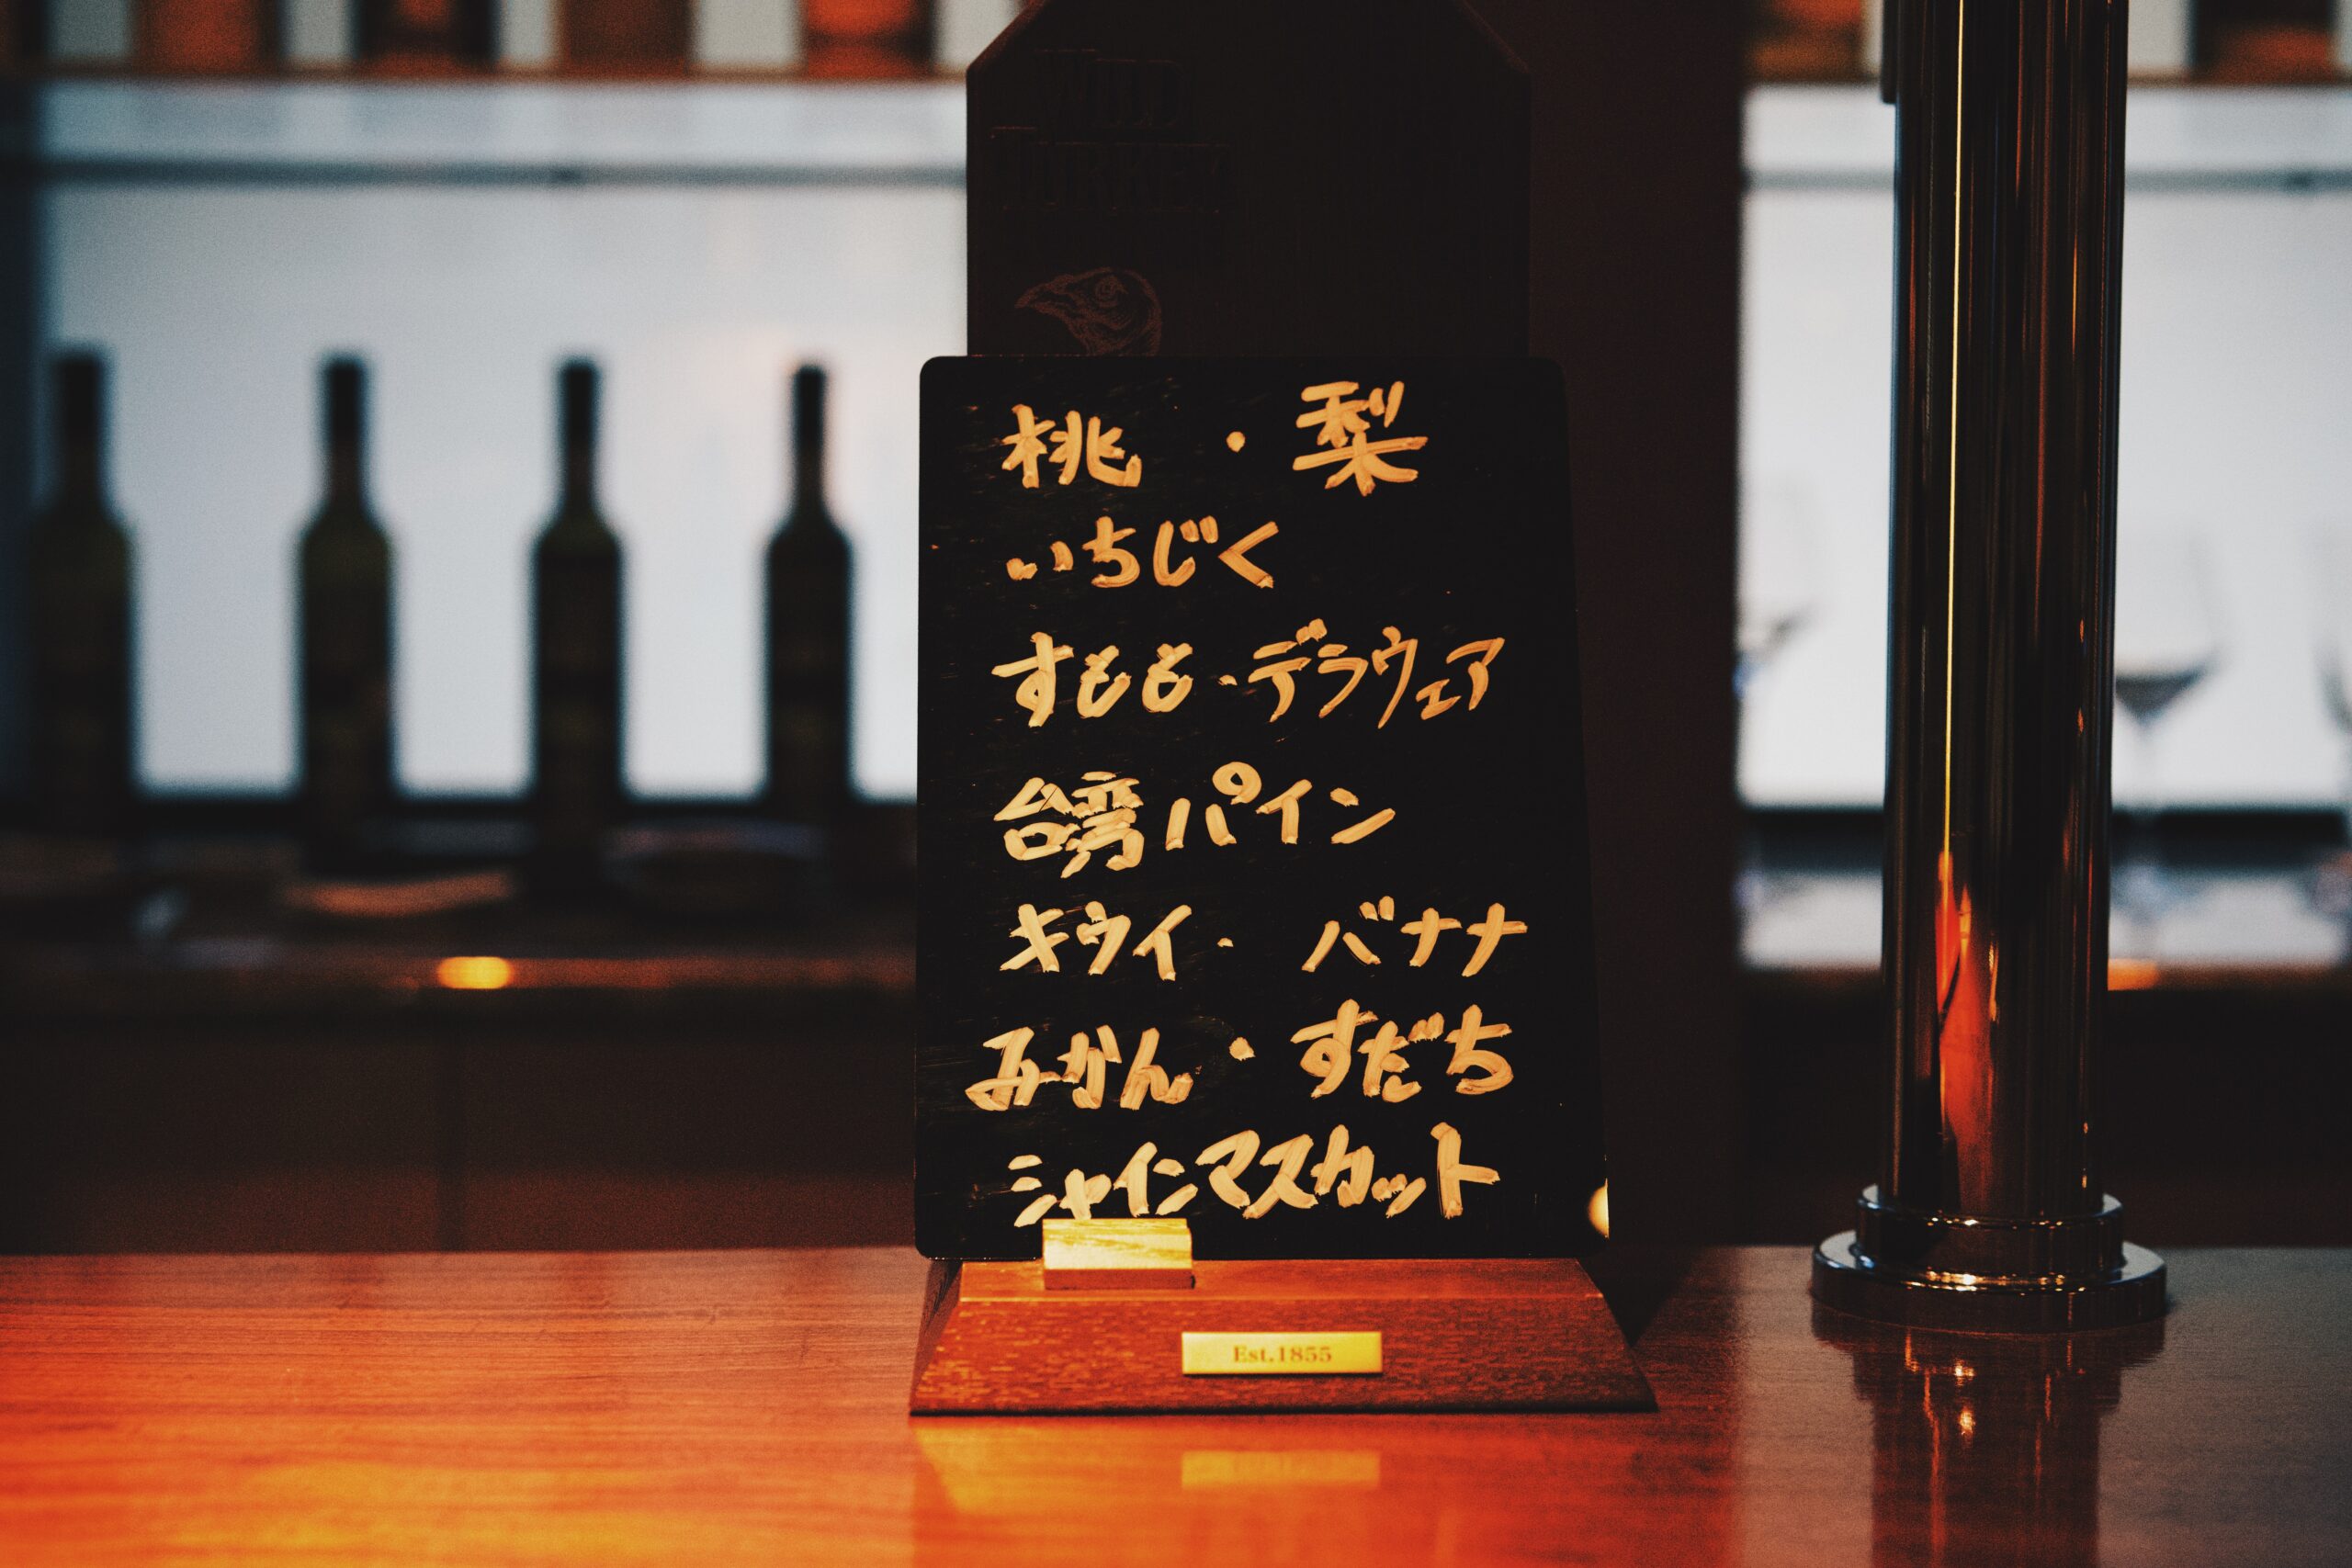 WILD
TURKEY
桃・梨
いちじく
すもも・デラウェア
台湾パイン
キウイ・バナナ
みかん・すだち
シャインマスカット
Est.1855